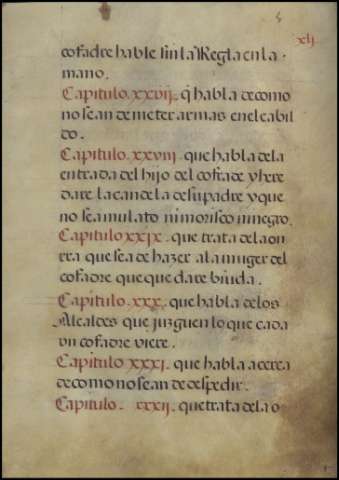 xlj
cofadre hable sin la Regla en la
mano.
Capitulo. xxvij. q̃ habla de como
no se an de meter armas en el cabil
do.
Capitulo. xxviij. que habla de la
entrada del hijo del cofrade y here
dare la candela de su padre y que
no sea mulato ni morisco ni negro.
Capitulo xxix. que trata de la on
rra que se a de hazer a la muger del
cofadre que quedare biuda.
Capitulo. xxx. que habla de los
Alcaldes que juzguen lo que cada
vn cofadre viere.
Capitulo xxxj. que habla acerca
de como no se an de despedir.
Capitulo. xxxij. que trata de la o